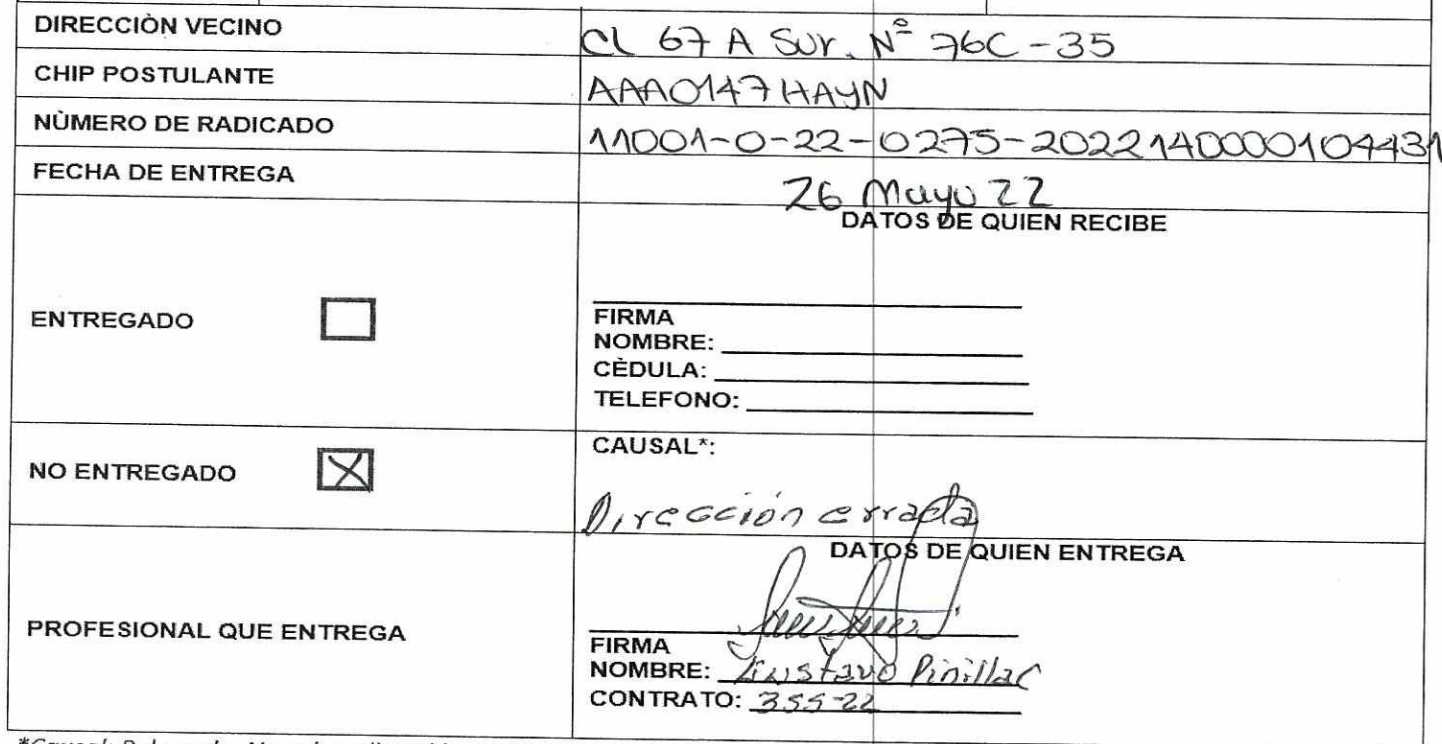 DIRECCIÒN VECINO CL 67 A SUr. Nº 76C-35
CHIP POSTULANTE AAA0147HAYN
NÙMERO DE RADICADO 11001-0-22-0275-2022140000104431
FECHA DE ENTREGA 26 Mayo 22
DATOS DE QUIEN RECIBE
ENTREGADO
FIRMA
NOMBRE:
CÈDULA:
TELEFONO:
NO ENTREGADO X
CAUSAL*:
Dirección errada
DATOS DE QUIEN ENTREGA
PROFESIONAL QUE ENTREGA
FIRMA
NOMBRE: Gustavo Pinilla C
CONTRATO: 355-22